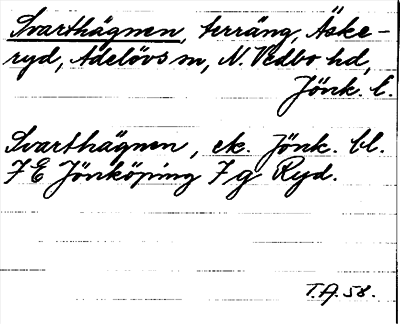 Svarthägnen, terräng, Äske-
ryd, Adelövs sn, N. Vedbo hd,
Jönk. l.
Svarthägnen, ek. Jönk. bl.
7E Jönköping 7 g Ryd.
T.A. 58.